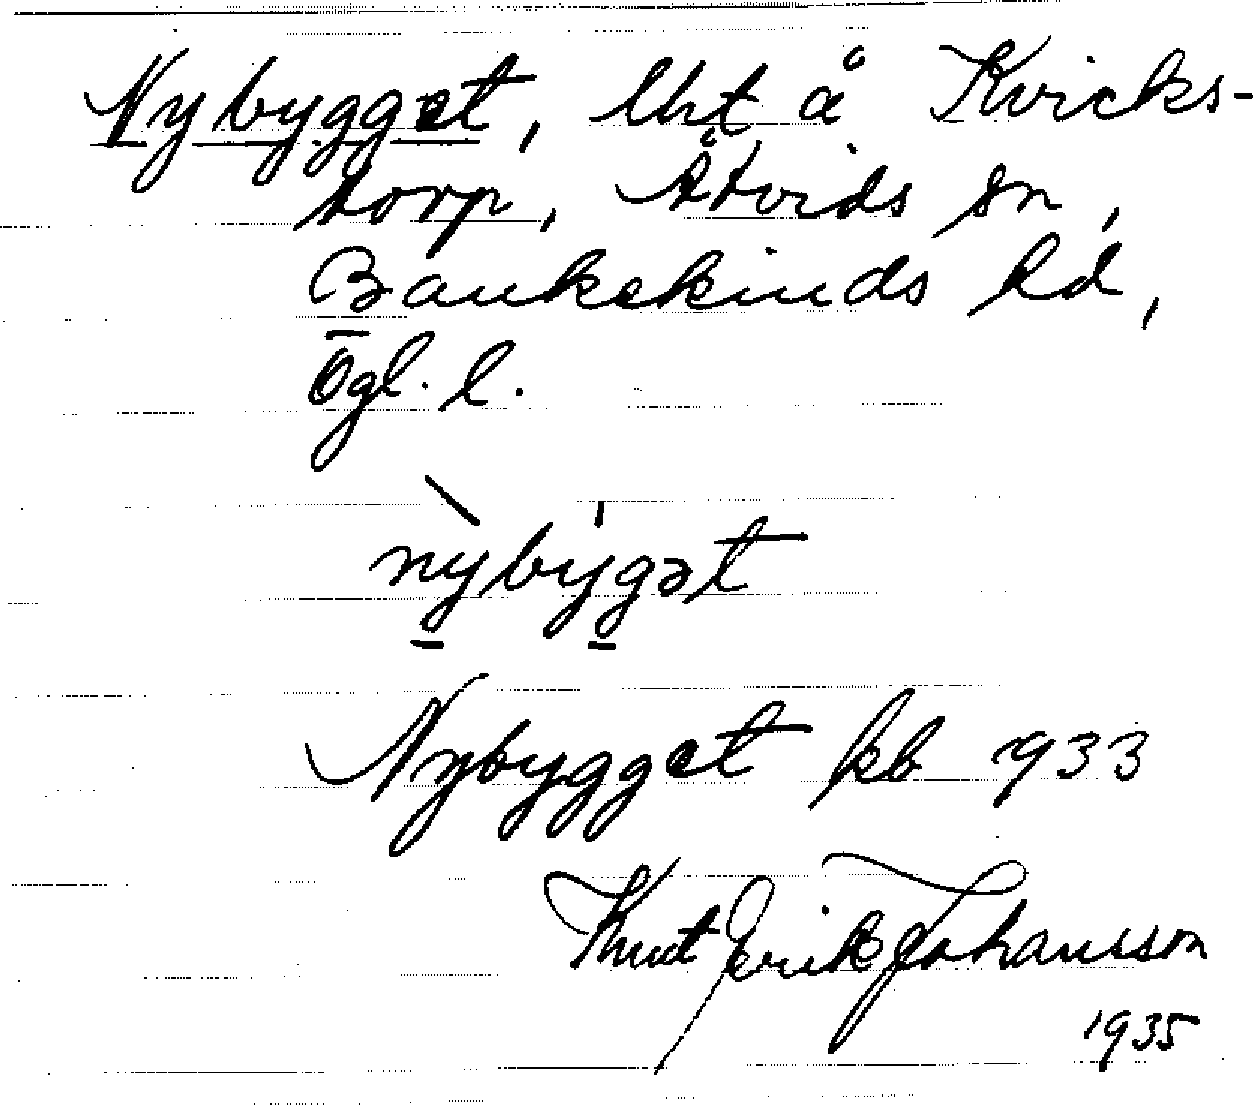 Nybygget, lht å Kvicks-
torp, Åtvids sn,
Bankekinds hd,
Ögl. l.
nỳ̱by̱̍gət
Nybygget kb 1933
Knut Erik Johansson
1935